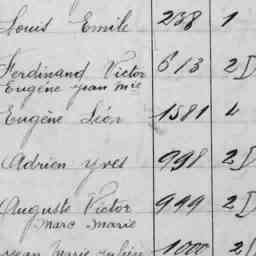 Louis Emile 238 1
Ferdinand Victor 613 2D
Eugène Jean Mie
Eugène Léon 1581 4
Adrien Yves 998 2D
Auguste Victor 999 2D
Marc Marie
Jean Marie Julien 1000 2D